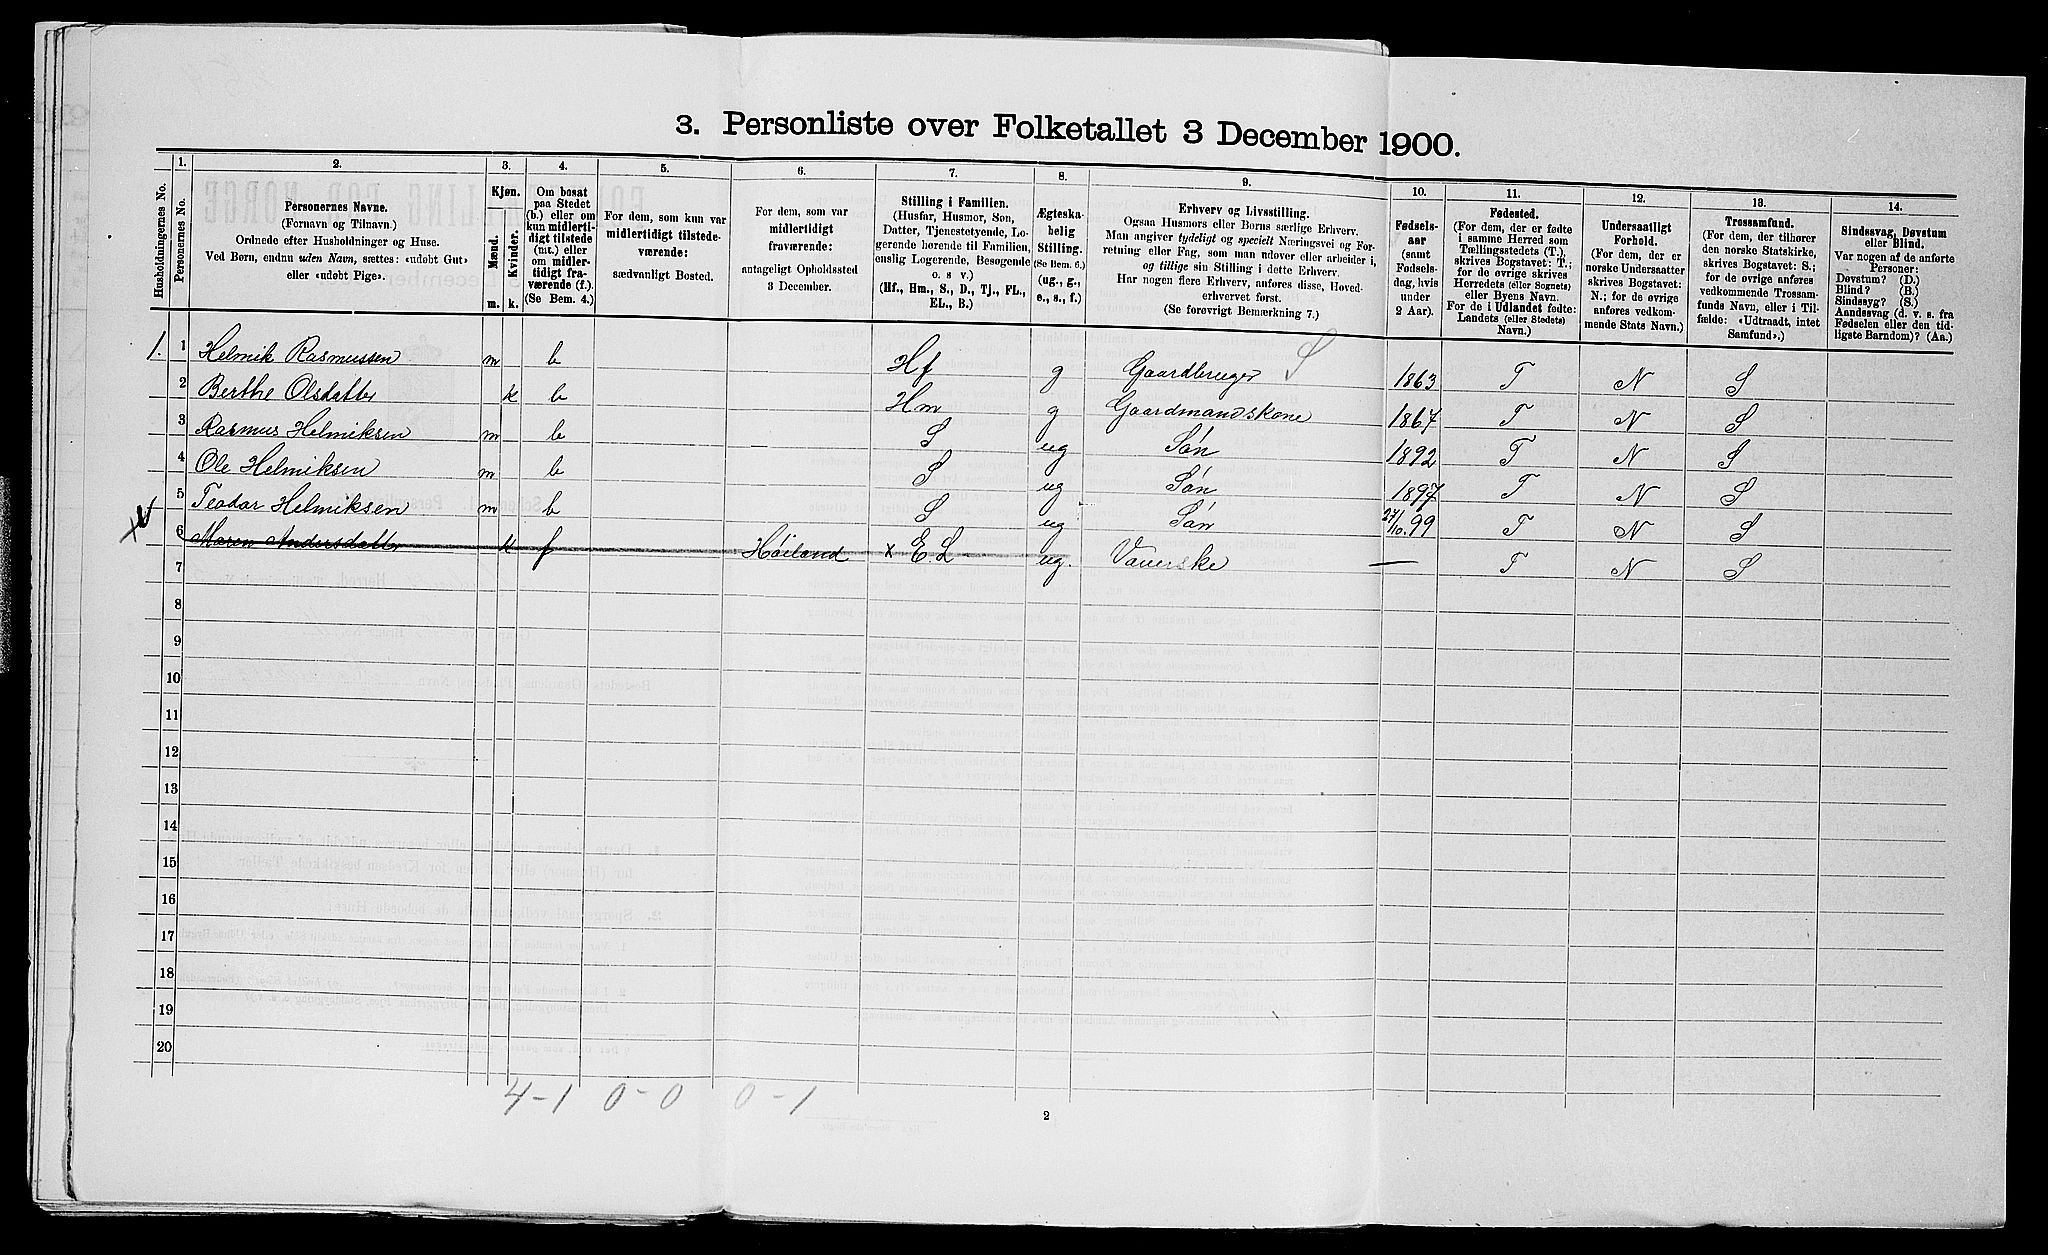 3. Personliste over Folketallet 3 December 1900.
Husholdningernes No.
1.
Personernes No.
2.
Personernes Navne.
(Fornavn og Tilnavn.)
Ordnede efter Husholdninger og Huse.
Ved Børn, endnu uden Navn, sættes: «udøbt Gut»
eller «udøbt Pige».
3.
Kjøn.
Mænd.
Kvinder.
m. k.
4.
Om bosat
paa Stedet
(b.) eller om
kun midlerti-
digt tilstede
(mt.) eller
om midler-
tidigt fra-
værende (f.)
(Se Bem. 4.)
5.
For dem, som kun var
midlertidigt tilstede-
værende:
sædvanligt Bosted.
6.
For dem, som var
midlertidigt
fraværende:
antageligt Opholdssted
3 December.
7.
Stilling i Familien.
(Husfar, Husmor, Søn,
Datter, Tjenestetyende, Lo-
gerende hørende til Familien,
enslig Logerende, Besøgende
o. s v.)
(Hf., Hm., S., D., Tj., FL.,
EL., B.)
8.
Ægteska-
belig
Stilling.
(Se Bem. 6.)
(ug., g.,
e., s., f.)
9.
Erhverv og Livsstilling.
Ogsaa Husmors eller Børns særlige Erhverv.
Man angiver tydeligt og specielt Næringsvei og For-
retning eller Fag, som man udøver eller arbeider i,
og tillige sin Stilling i dette Erhverv.
Har nogen flere Erhverv, anføres disse, Hoved-
erhvervet først.
(Se forøvrigt Bemærkning 7.)
10.
Fødsels-
aar
(samt
Fødsels-
dag, hvis
under
2 Aar).
11.
Fødested.
(For dem, der er fødte
i samme Herred som
Tællingsstedets (T.),
skrives Bogstavet: T.;
for de øvrige skrives
Herredets (eller Sognets)
eller Byens Navn.
For de i Udlandet fødte:
Landets (eller Stedets)
Navn.)
12.
Undersaatligt
Forhold.
(For dem, der er
norske Undersaatter
skrives Bogstavet:
N.; for de øvrige
anføres vedkom-
mende Stats Navn.)
13.
Trossamfund.
(For dem, der tilhører
den norske Statskirke,
skrives Bogstavet: S.;
for de øvrige anføres
vedkommende Trossam-
funds Navn, eller i Til-
fælde: «Udtraadt, intet
Samfund».)
14.
Sindssvag, Døvstum
eller Blind.
Var nogen af de anførte
Personer:
Døvstum? (D.)
Blind? (B.)
Sindssyg? (S.)
Aandssvag (d. v. s. fra
Fødselen eller den tid-
ligste Barndom)? (Aa.)
1. 1 Helmik Rasmussen m b Hf g Gaardbruger S 1863 T N S
2 Berthe Olsdatter k b Hm g Gaardmandskone 1867 T N S
3 Rasmus Helmiksen m b S ug Søn 1892 T N S
4 Ole Helmiksen m b S ug Søn 1897 T N S
5 Teodor Helmiksen m b S ug Søn 27/10.99 T N S
6 Maren Andersdatter k f Høiland x E.L ug. Væverske — T N S
7
8
9
10
11
12
13
14
15
16
17
18
19
20
4-1 0-0 0-1
2